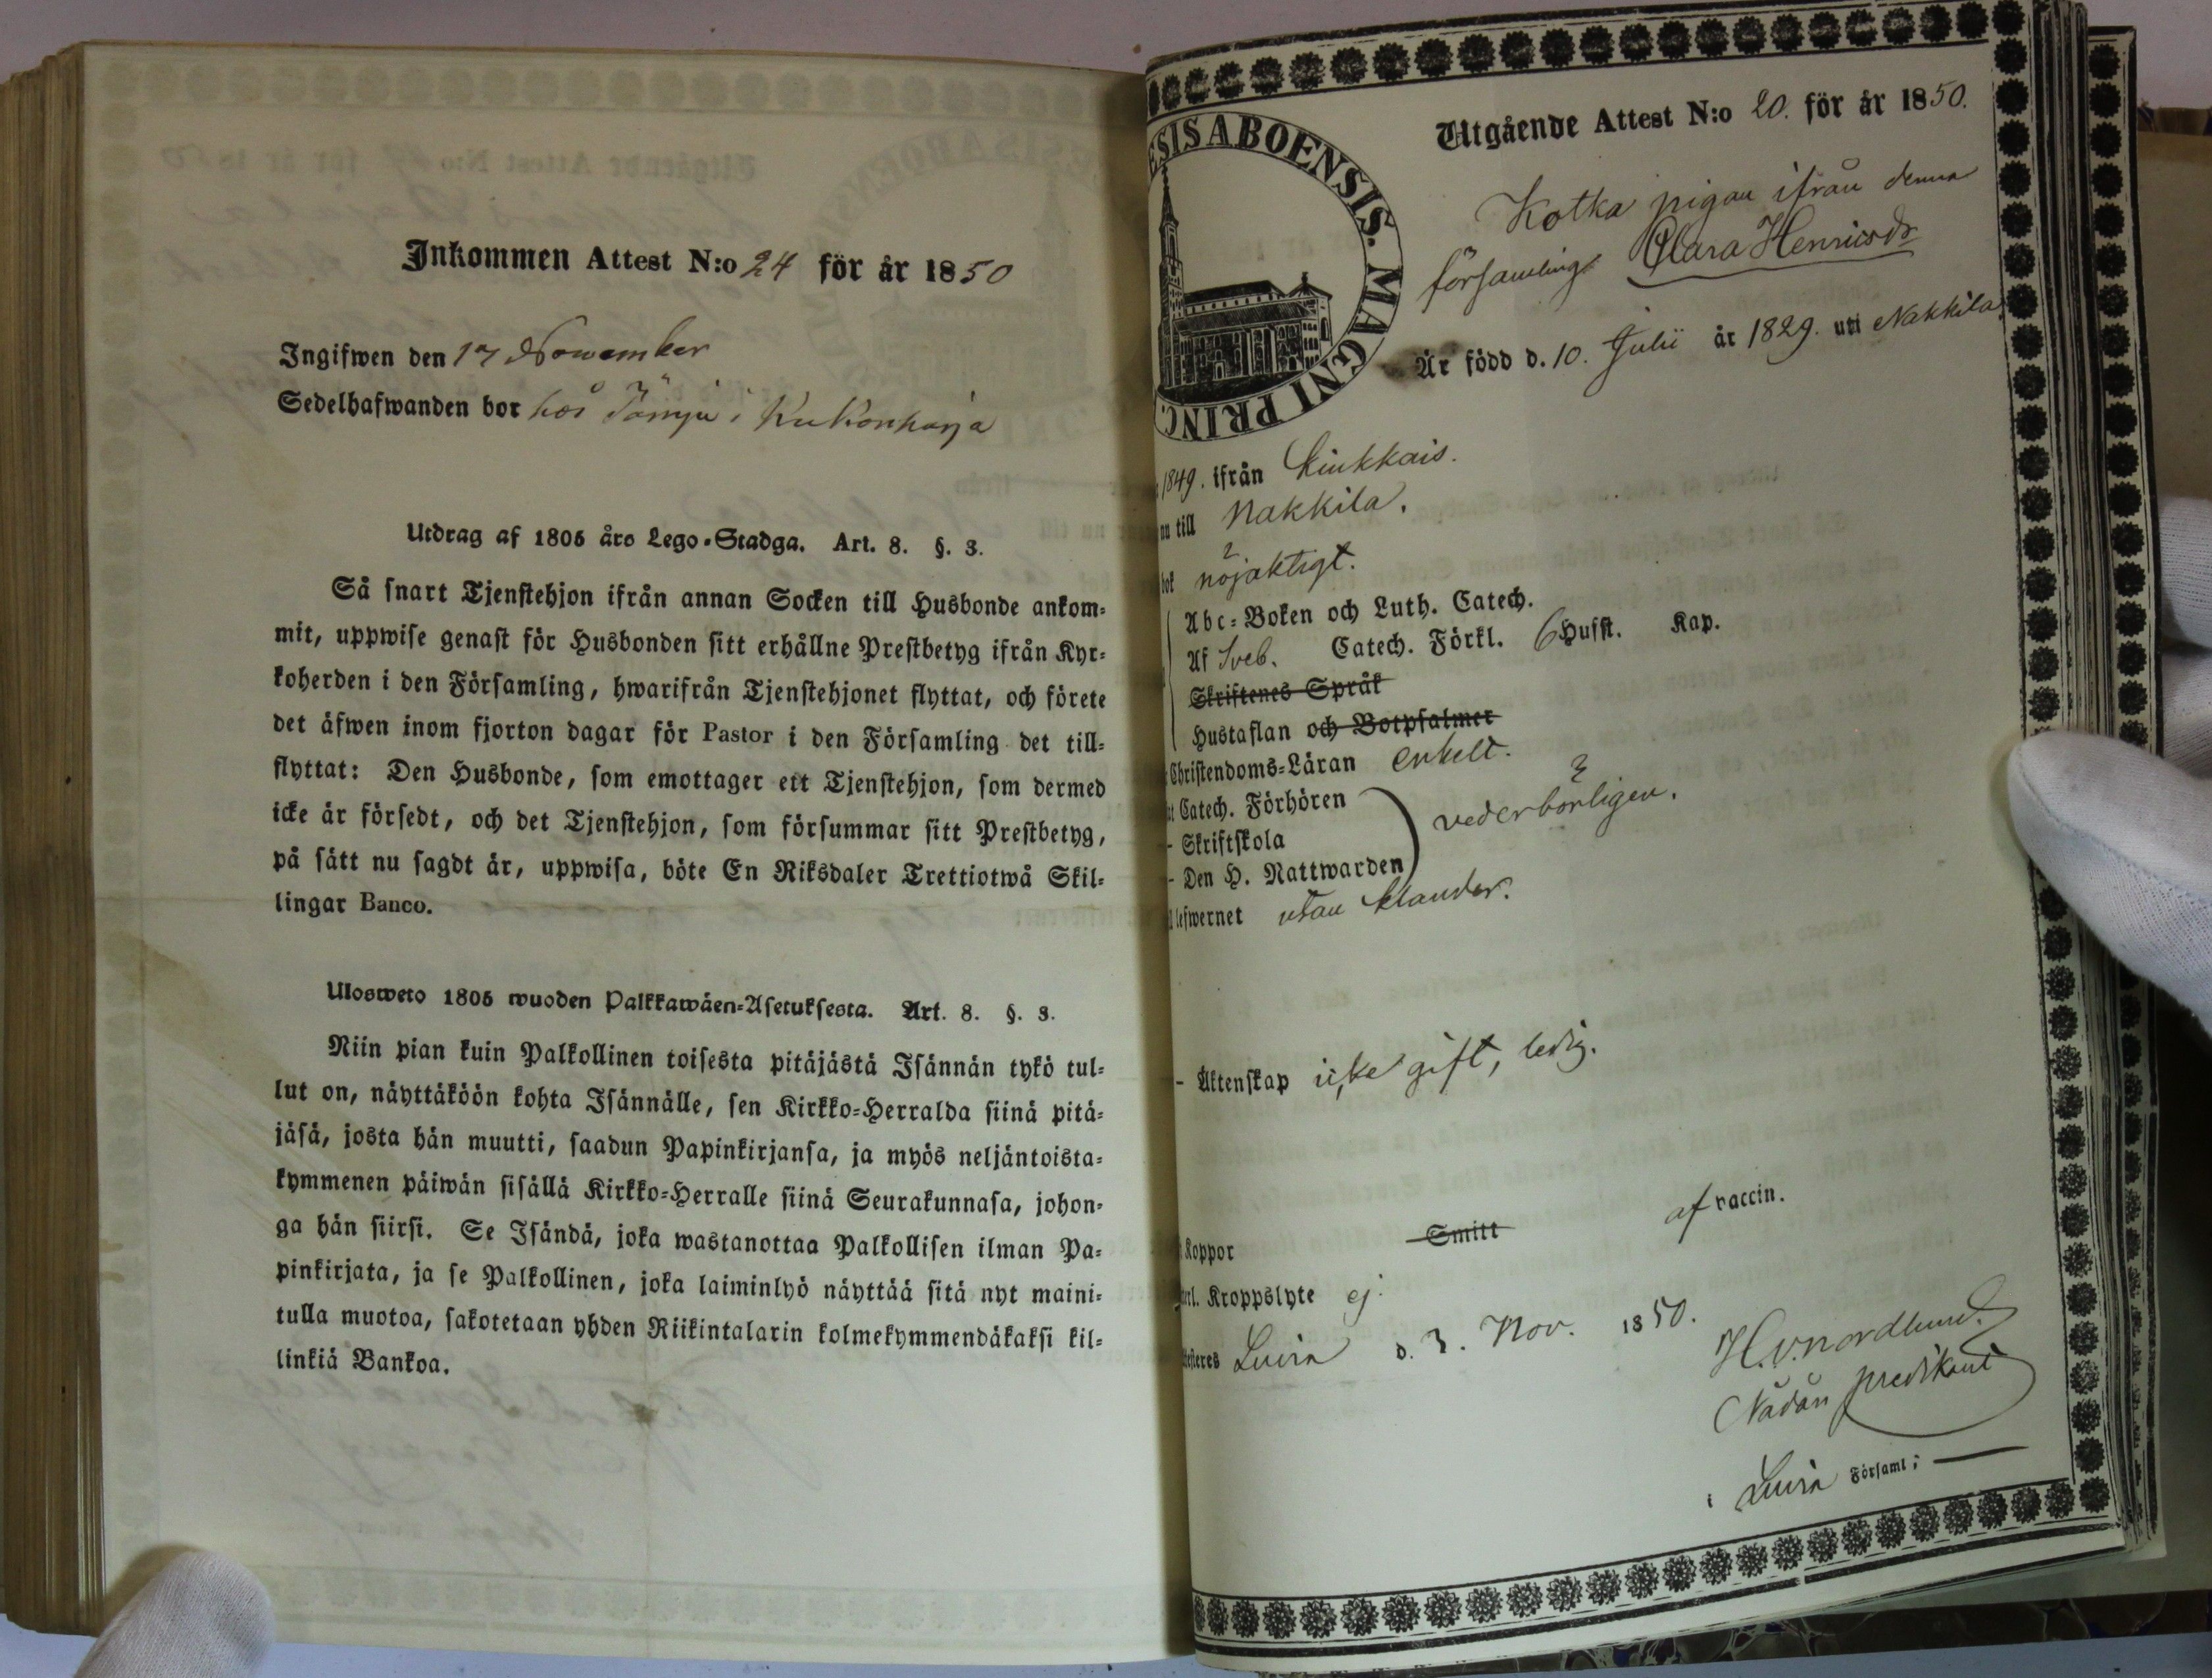 Inkommen Attest N:o 24 för år 1850
Ingifwen den 17 Nowember
Sedelhafwanden bor hos i Kukonharja
Utdrag af 1805 års Lego-Stadga. Art. 8. §. 3.
Så snart Tjenstehjon ifrån annan Socken till Husbonde ankom-
mit, uppwise genast för Husbonden sitt erhållne Prestbetyg ifrån Kyr-
koherden i den Församling, hwarifrån Tjenstehjonet flyttat, och förete
det äfwen inom fjorton dagar för Pastor i den Församling det till-
flyttat: Den Husbonde, som emottager ett Tjenstehjon, som dermed
icke är försedt, och det Tjenstehjon, som försummar sitt Prestbetyg,
på sätt nu sagdt är, uppwisa, böte En Riksdaler Trettiotwå Skil-
lingar Banco.
Ulosweto 1805 wuoden Palkkawäen-Asetuksesta. Art. 8. §. 3.
Niin pian kuin Palkollinen toisesta pitäjästä Isännän tykö tul-
lut on, näyttäköön kohta Isännälle, sen Kirkko-Herralda siinä pitä-
jäsä, josta hän muutti, saadun Papinkirjansa, ja myös neljäntoista-
kymmenen päiwän sisällä Kirkko-Herralle siinä Seurakunnasa, johon-
ga hän siirsi. Se Isändä, joka wastanottaa Palkollisen ilman Pa-
pinkirjata, ja se Palkollinen, joka laiminlyö näyttää sitä nyt maini-
tulla muotoa, sakotetaan yhden Riikintalarin kolmekymmendäkaksi kil-
linkiä Bankoa.
ESIS ABOENSIS. MAGNI PRINC.
Utgående Attest N:o 20. för år 1850.
Kotka pigan ifrån denna
församling Clara Henricsdr
Är född d. 10. Julii år 1829. uti Nakkila.
1849. ifrån Kiukkais.
nu till Nakkila.
bok nöjaktigt.
Abc-Boken och Luth. Catech.
Af Sveb. Catech. Förkl. 6 Husst. Kap.
Skriftenes Språk
Hustaflan och Botpsalmer
Christendoms-Läran enkelt.
Catech. Förhören
- Skriftskola vederbörligen.
- Den H. Nattwarden
lefwernet utan klander.
- Äktenskap icke gift, ledig.
Koppor Smitt af vaccin.
Kroppslyte ej.
Luvia d. 3. Nov. 1850.
H. v. Nordlund.
Nådårs predikant
i Luvia Församl: